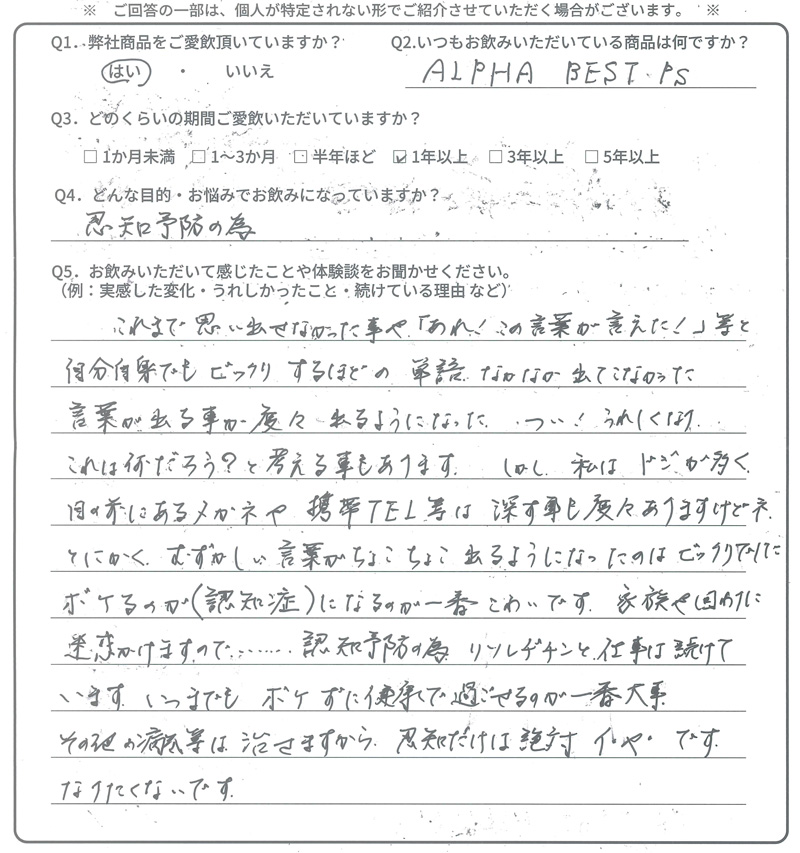 ※ ご回答の一部は、個人が特定されない形でご紹介させていただく場合がございます。 ※
Q1. 弊社商品をご愛飲頂いていますか？
はい ・ いいえ
Q2.いつもお飲みいただいている商品は何ですか？
ALPHA BEST PS
Q3. どのくらいの期間ご愛飲いただいていますか？
□ 1か月未満 □ 1〜3か月 □ 半年ほど ☑ 1年以上 □ 3年以上 □ 5年以上
Q4. どんな目的・お悩みでお飲みになっていますか？
忍知予防の為
Q5. お飲みいただいて感じたことや体験談をお聞かせください。
（例：実感した変化・うれしかったこと・続けている理由 など）
これまで思い出せなかった事や「あれ！この言葉が言えた！」等と
自分自身でも ビックリ するほどの 単語 なかなか 出てこなかった
言葉が出る事が度々 出るようになった つい！うれしくなり
これは何だろう？と考える事もあります。 しかし 私は ドジが多く
目の前にあるメガネや 携帯TEL等は 深す事も度々ありますけどネ、
とにかく むずかしい言葉がちょこちょこ 出るようになったのは ビックリでした
ボケるのが(認知症)になるのが一番こわいです。 家族や回わりに
迷惑かけますので……… 認知予防の為 リゾレチチンと 仕事は続けて
います。いつまでも ボケ ずに健康で過ごせるのが一番大事
その他の病気等は 治せますから、忍知だけは絶対 イ・や・ です。
なりたくないです。